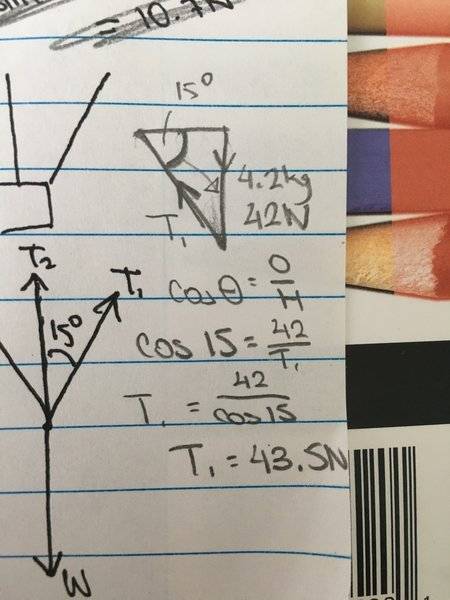 = 10.7N
15°
4.2kg
42N
T₁
T₂
T₁
15°
W
cosθ = O/H
cos 15 = 42/T₁
T₁ = 42/cos15
T₁ = 43.5N